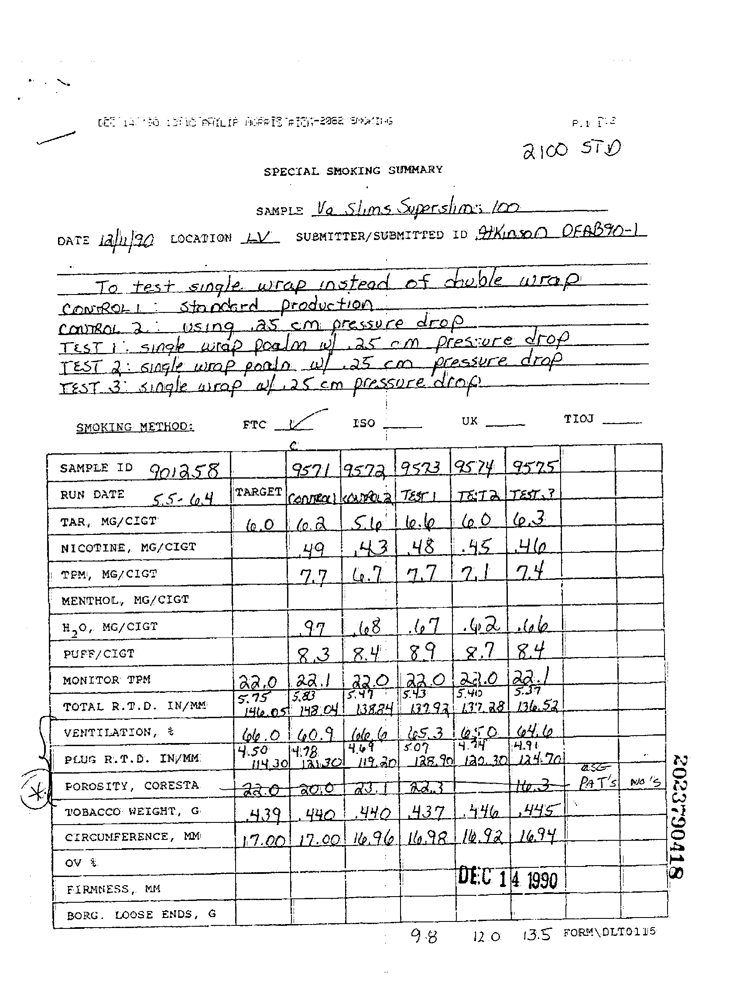 DEC 14 '90 PHILIP MORRIS SMOKING P.1
2100 STD
SPECIAL SMOKING SUMMARY
SAMPLE Va Slims Superslims 100
DATE 12/11/90 LOCATION LV SUBMITTER/SUBMITTED ID Atkinson OFAB90-1
To test single wrap instead of double wrap
CONTROL 1: standard production
CONTROL 2: using .25 cm pressure drop
TEST 1: single wrap w/ .25 cm pressure drop
TEST 2: single wrap w/ .25 cm pressure drop
TEST 3: single wrap w/ .25 cm pressure drop
SMOKING METHOD: FTC ✓ ISO ____ UK ____ TIOJ ____
C
SAMPLE ID 901258 9571 9572 9573 9574 9575
RUN DATE 5.5-6.4 TARGET CONTROL 1 CONTROL 2 TEST 1 TEST 2 TEST 3
TAR, MG/CIGT 6.0 6.2 5.6 6.6 6.0 6.3
NICOTINE, MG/CIGT .49 .43 .48 .45 .46
TPM, MG/CIGT 7.7 6.7 7.7 7.1 7.4
MENTHOL, MG/CIGT
H2O, MG/CIGT .97 .68 .67 .62 .66
PUFF/CIGT 8.3 8.4 8.9 8.7 8.4
MONITOR TPM 22.0 22.1 22.0 22.0 22.0 22.1
5.75 5.83 5.47 5.43 5.40 5.37
TOTAL R.T.D. IN/MM 146.05 148.04 138.84 137.92 137.28 136.52
VENTILATION, % 66.0 60.9 66.6 65.3 65.0 64.6
4.50 4.78 4.69 5.07 4.74 4.91
PLUG R.T.D. IN/MM 114.30 121.30 119.20 128.90 120.30 124.70
POROSITY, CORESTA 22.0 20.0 23.1 22.3 16.3 PAT'S NO'S
TOBACCO WEIGHT, G .439 .440 .440 .437 .446 .445
CIRCUMFERENCE, MM 17.00 17.00 16.96 16.98 16.92 16.94
OV %
FIRMNESS, MM
DEC 14 1990
BORG. LOOSE ENDS, G
9.8 12.0 13.5 FORM\DLT0115
2023790418